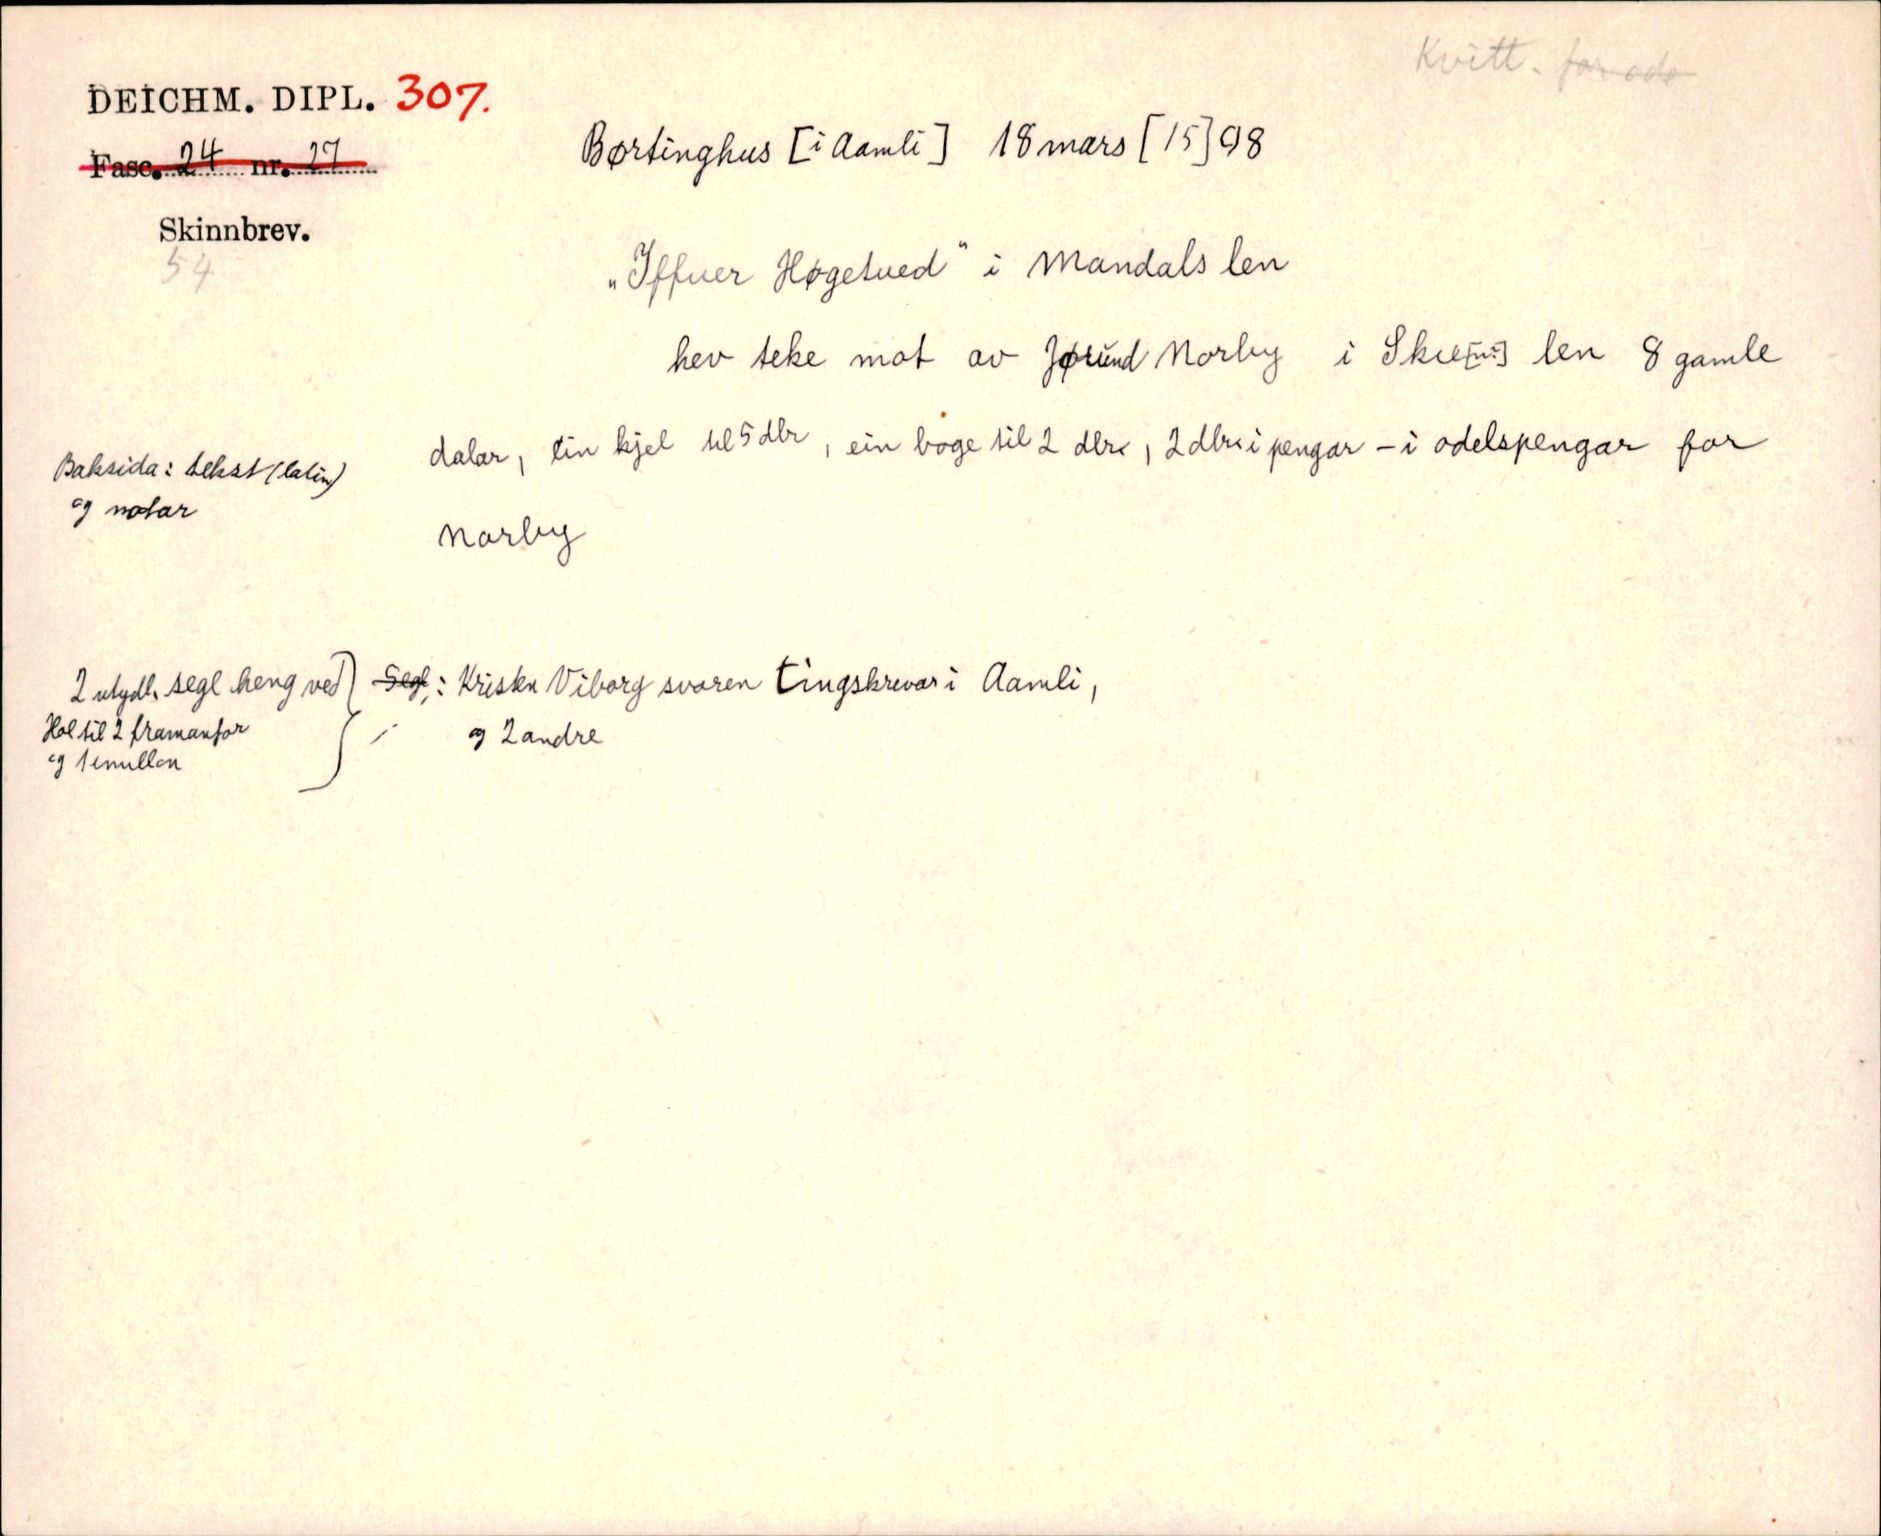 Kvitt. for odo
DEICHM. DIPL. 307.
Fasc. 24 nr. 27
Børtinghus [i Aamli] 18 mars [15]98
Skinnbrev.
54
"Iffuer Høgetued" i Mandals len
hev teke mot av Jørund Norby i Skie[n:] len 8 gamle
dalar, ein kjel til 5 dlr, ein boge til 2 dlr, 2 dlr i pengar - i odelspengar for
Norby
Baksida: tekst (latin)
og notar
2 utydl. segl heng ved } Segl,: Kristen Viborg svoren tingskrivar i Aamli,
Hol til 2 framanfor
og 2 andre
og 1 imillon